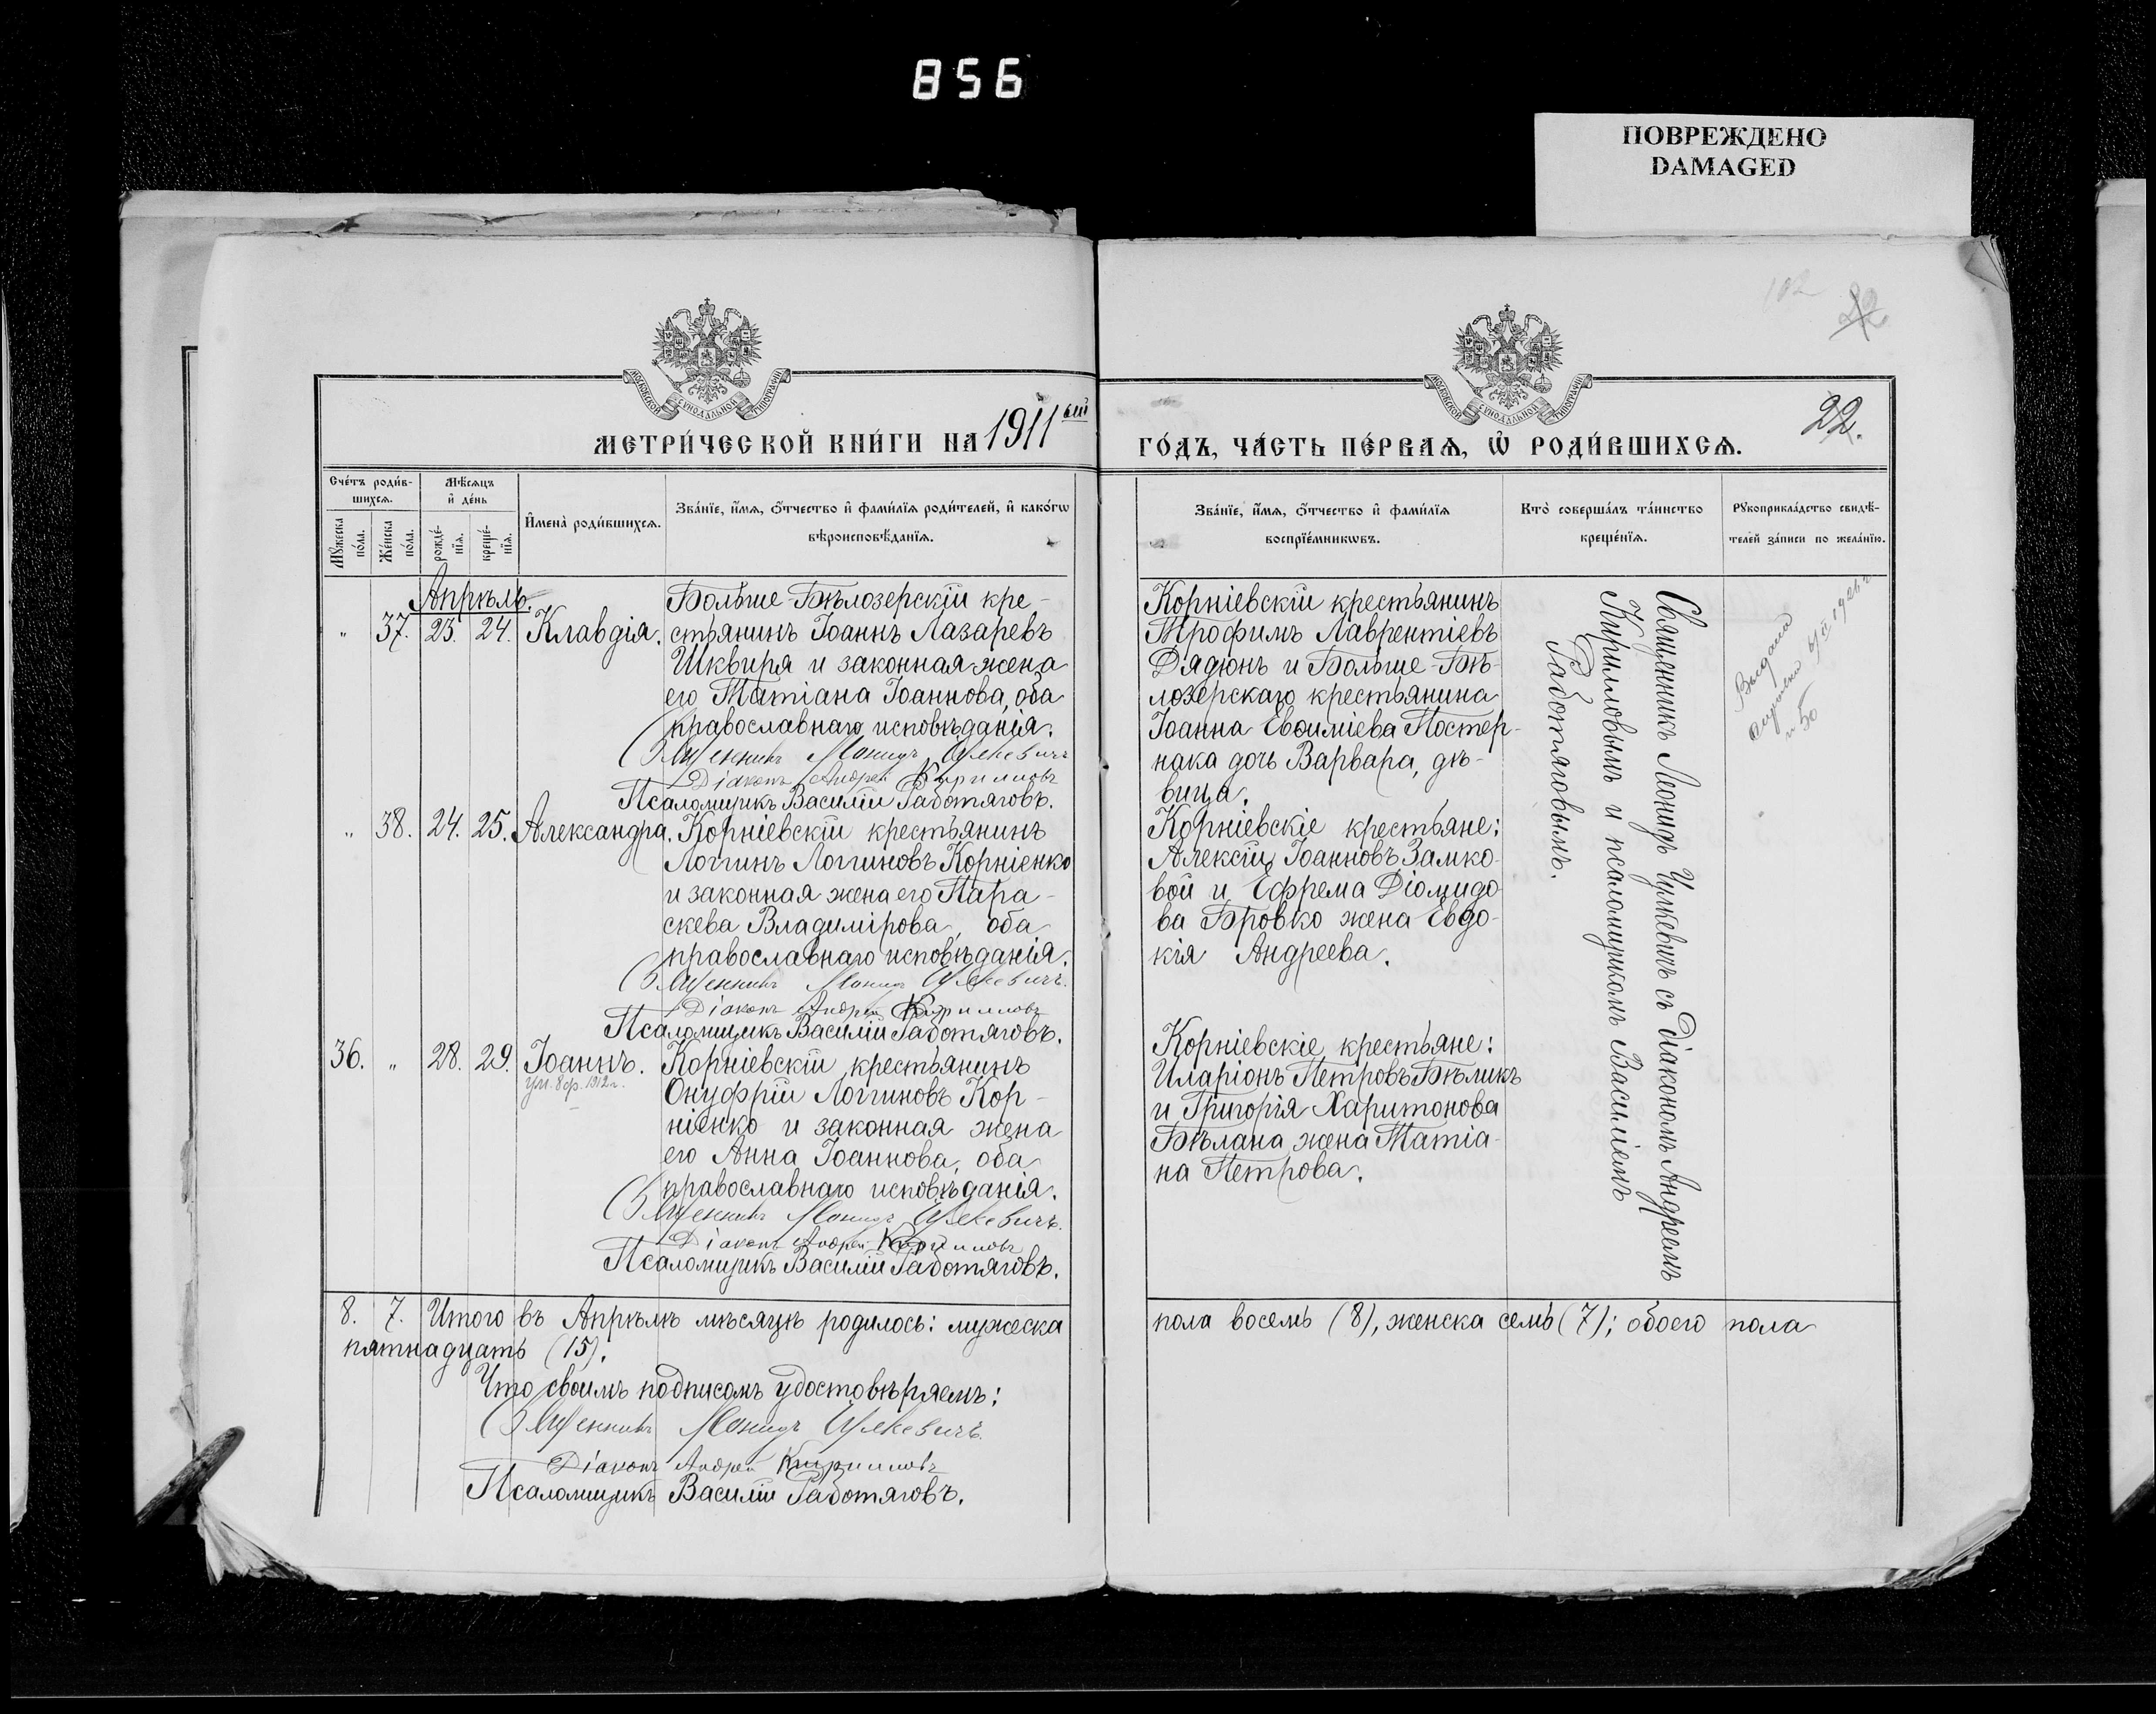 856
ПОВРЕЖДЕНО
DAMAGED
22
МОСКОВСКОЙ СУНОДАЛЬНОЙ ТИПОГРАФІИ
МОСКОВСКОЙ СУНОДАЛЬНОЙ ТИПОГРАФІИ
МЕТРИ́ЧЕСКОЙ КНИ́ГИ НА 1911ый
ГО́ДЪ, ЧА́СТЬ ПЕ́РВАѦ, Ѡ҆ РОДИ́ВШИХСѦ.
22.
Сче́тъ роди́в-
шихсѧ.
Мꙋ́жеска по́ла.
Же́нска по́ла.
Мѣ́сѧцъ
и҆ де́нь
рожде́-
нїѧ.
креще́-
нїѧ.
И҆мена̀ роди́вшихсѧ.
Зва́нїе, и҆́мѧ, ѻ҆́тчество и҆ фами́лїѧ роди́телей, и҆ како́гѡ
вѣроисповѣ́данїѧ.
Зва́нїе, и҆́мѧ, ѻ҆́тчество и҆ фами́лїѧ
воспрїе́мникѡвъ.
Кто̀ соверша́лъ та́инство
креще́нїѧ.
Рꙋкоприкла́дство свидѣ́-
телей за́писи по жела́нїю.
Апрѣль.
" 37. 23. 24. Клавдія.
Больше-Бѣлозерскій кре-
стьянинъ Іоаннъ Лазаревъ
Шквиря и законная жена
его Татіана Іоаннова, оба
православнаго исповѣданія.
Священникъ Леонидъ Цулкевичъ
Діаконъ Андрей Кирилловъ
Псаломщикъ Василій Работяговъ.
Корніевскій крестьянинъ
Трофимъ Лаврентіевъ
Дядюнъ и Больше-Бѣ-
лозерскаго крестьянина
Іоанна Евѳиміева Постер-
нака дочь Варвара, дѣ-
вица.
Священникъ Леонидъ Цулкевичъ съ діакономъ Андреемъ
Кирилловымъ и псаломщикомъ Василіемъ
Работяговымъ.
Выдана
" 38. 24. 25. Александра.
Корніевскій крестьянинъ
Логгинъ Логгиновъ Корніенко
и законная жена его Пара-
скева Владимірова, оба
православнаго исповѣданія.
Священникъ Леонидъ Цулкевичъ.
Діаконъ Андрей Кирилловъ
Псаломщикъ Василій Работяговъ.
Корніевскіе крестьяне:
Алексій Іоанновъ Замко-
вой и Ефрема Діомидо-
ва Бровко жена Евдо-
кія Андреева.
36. " 28. 29. Іоаннъ.
ум. 8 ф. 1912 г.
Корніевскій крестьянинъ
Онуфрій Логгиновъ Кор-
ніенко и законная жена
его Анна Іоаннова, оба
православнаго исповѣданія.
Священникъ Леонидъ Цулкевичъ.
Діаконъ Андрей Кирилловъ
Псаломщикъ Василій Работяговъ.
Корніевскіе крестьяне:
Иларіонъ Петровъ Бѣликъ
и Григорія Харитонова
Бѣлана жена Татіа-
на Петрова.
8. 7. Итого въ Апрѣлѣ мѣсяцѣ родилось: мужеска
пола восемь (8), женска семь (7); обоего пола
пятнадцать (15).
Что своимъ подписомъ удостовѣряемъ:
Священникъ Леонидъ Цулкевичъ.
Діаконъ Андрей Кирилловъ
Псаломщикъ Василій Работяговъ.